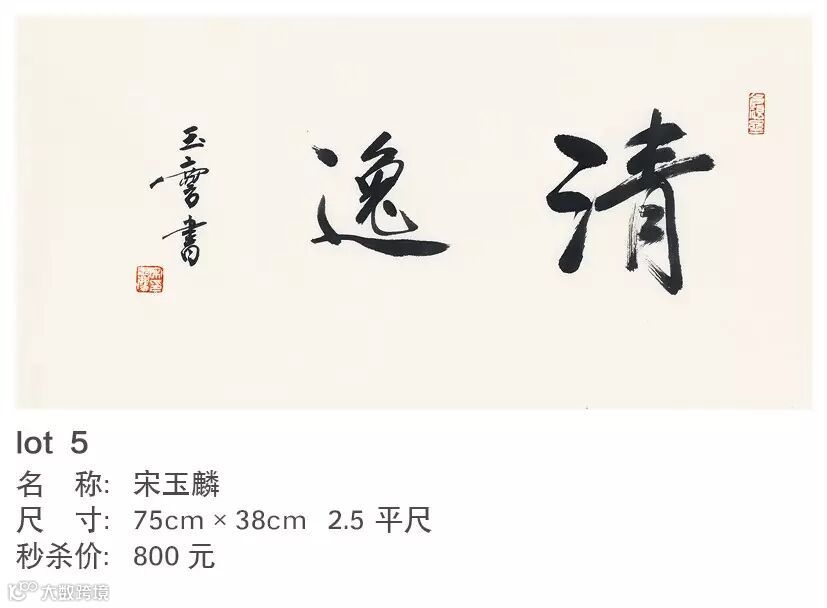 清逸
玉麐書
lot 5
名 称: 宋玉麟
尺 寸: 75cm × 38cm 2.5 平尺
秒杀价: 800 元
大数跨境